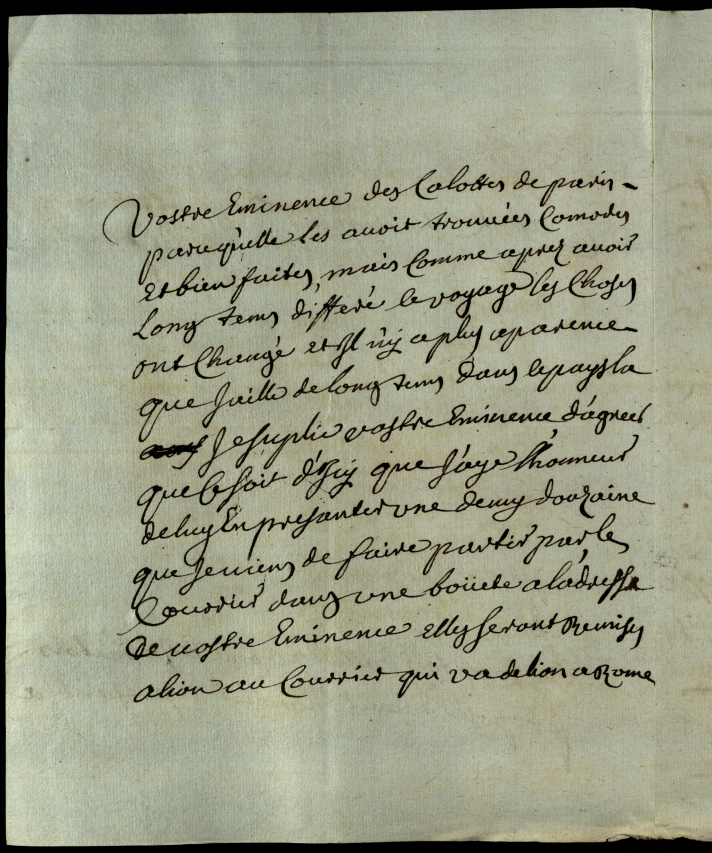 Vostre Eminence des Calottes de paris
paraqu'elle les avoit trouvées Comodes
Et bien faites, mais Comme aprez avoir
Long tems differé le voyage les Choses
ont Changé et Jl n'y a plus aparence
que J'aille de long tems dans le pays la
Je suplie vostre Eminence d'agreer
que Ce soit d'Jcy que J'aye l'honneur
de luy En presanter une demy douzaine
que Je viens de faire partir par le
Courrier dans une boüete a l'adresse
De vostre Eminence elles seront Remises
a lion au Courrier qui va de lion a Rome